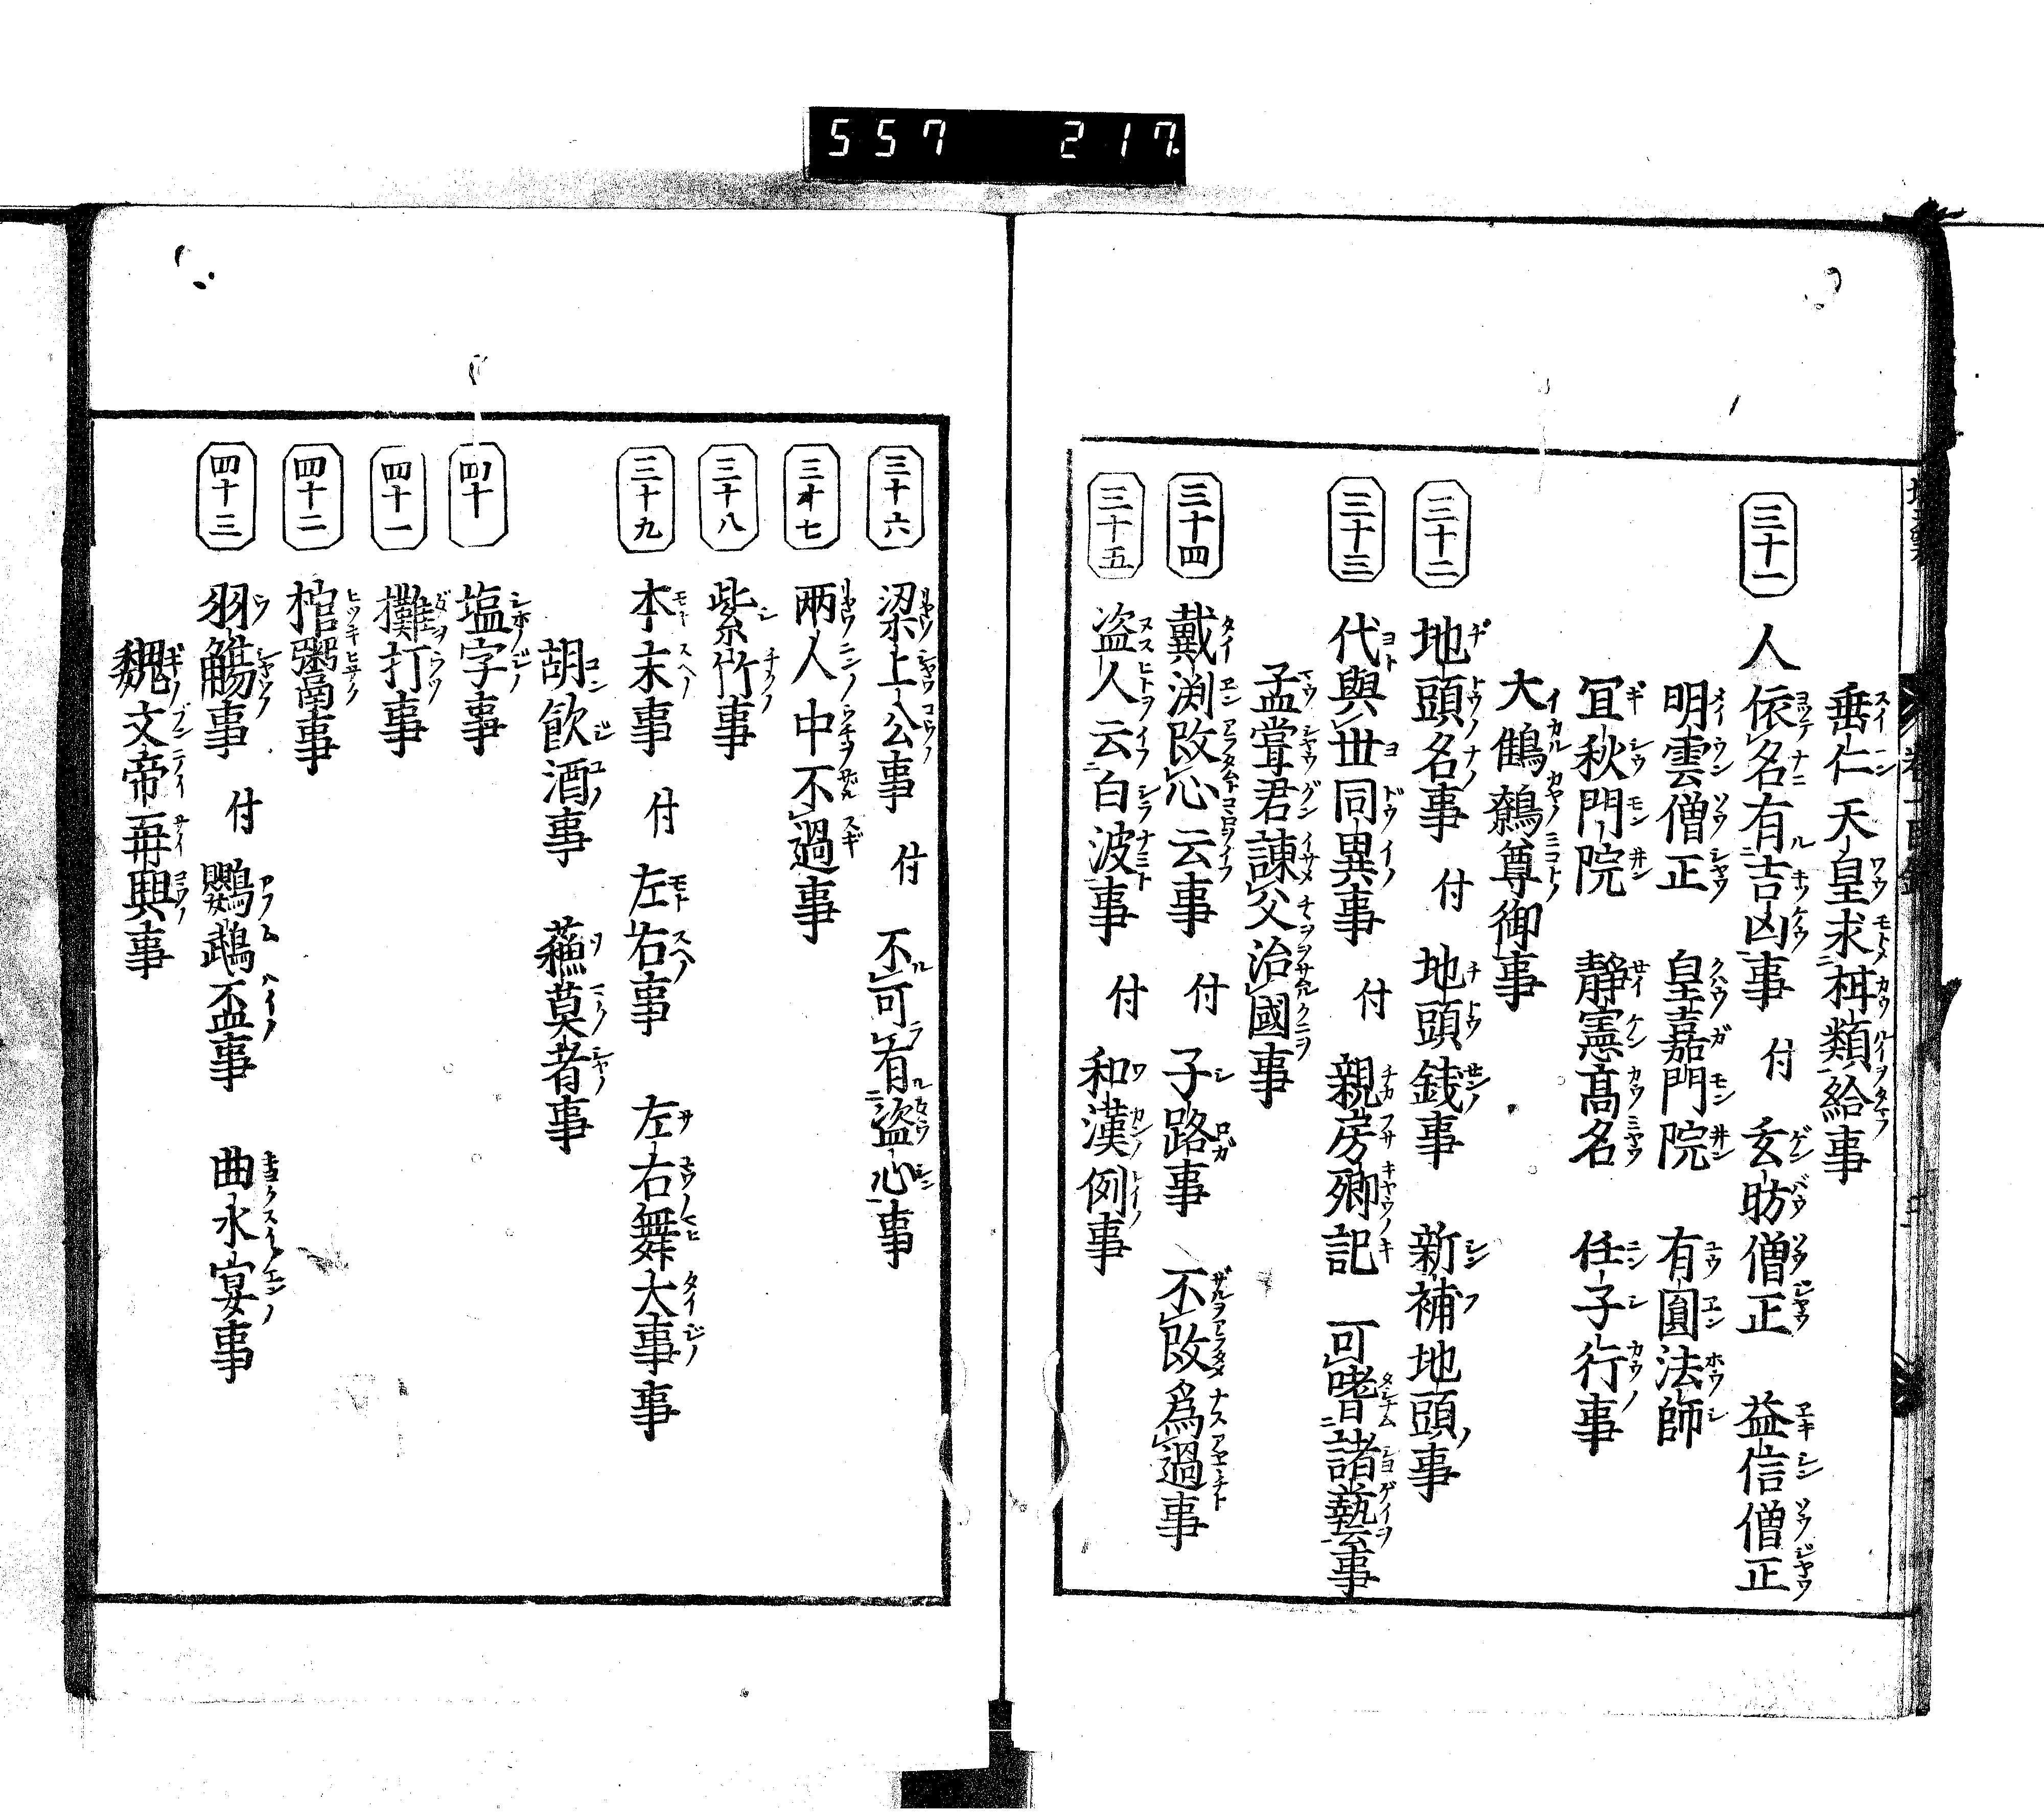 557 217
垂仁天皇求柑類給事
三十一 人依名有吉凶事 付 玄昉僧正 益信僧正
明雲僧正 皇嘉門院 有圓法師
冝秋門院 静憲高名 任子行事
大鶴鷀尊御事
三十二 地頭名事 付 地頭銭事 新補地頭事
三十三 代與世同異事 付 親房卿記 可嗜諸藝事
孟甞君諌父治國事
三十四 戴渕改心云事 付 子路事 不改爲過事
三十五 盗人云白波事 付 和漢例事
三十六 梁上公事 付 不可有盗心事
三十七 兩人中不過事
三十八 紫竹事
三十九 本末事 付 左右事 左右舞大事事
胡飲酒事 蘓莫者事
四十 塩字事
四十一 攤打事
四十二 棺鬻事
四十三 羽觴事 付 鸚鵡盃事 曲水宴事
魏文帝再興事